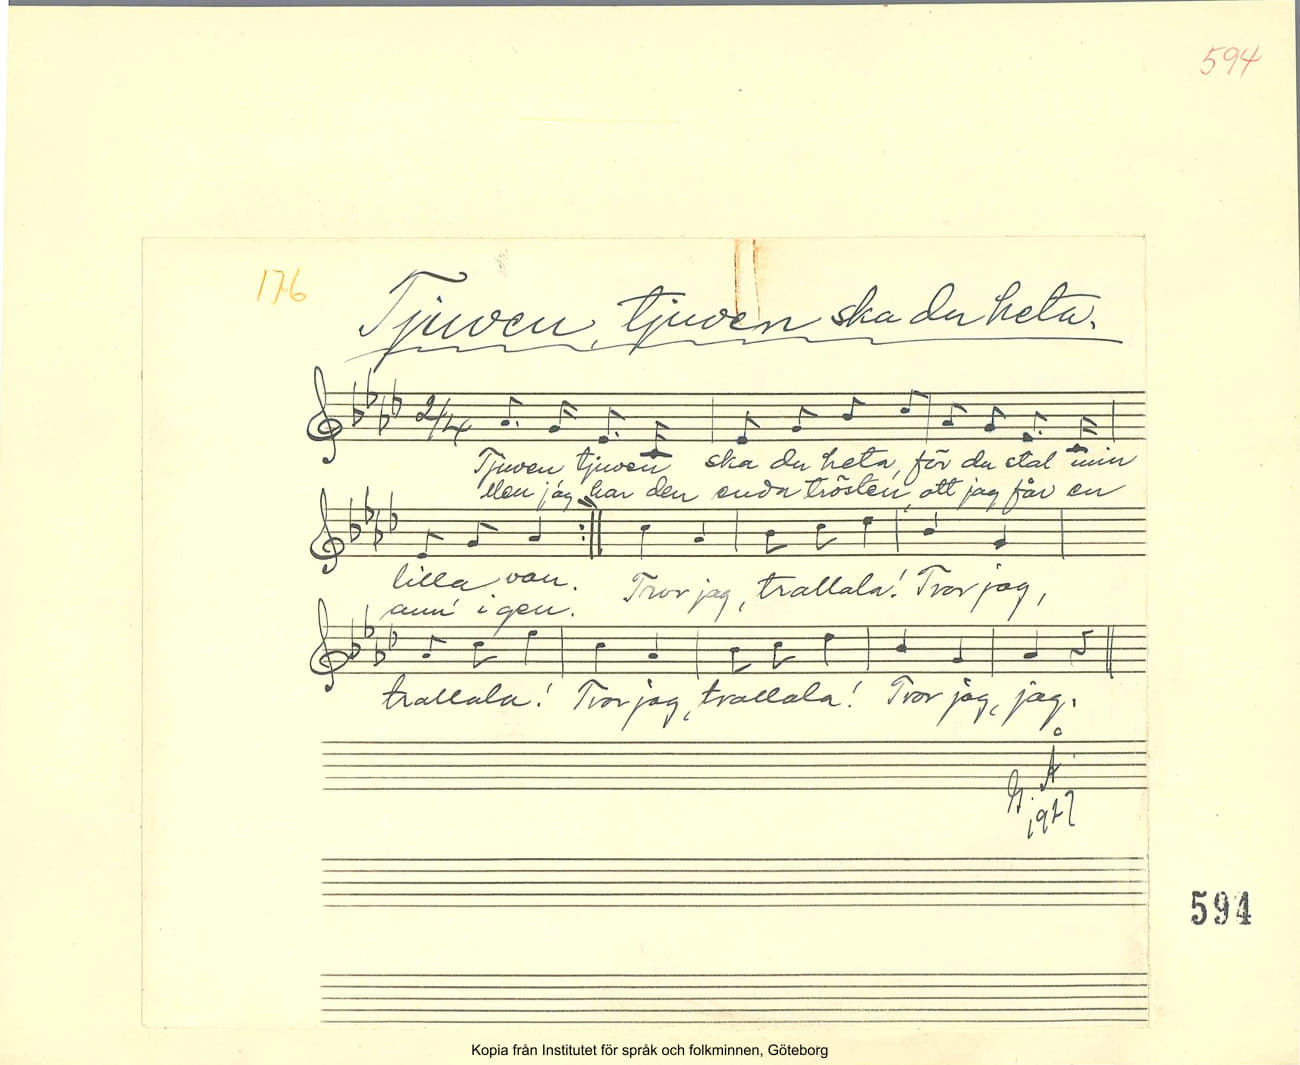 594
176
Tjuven, tjuven ska du heta.
2/4
Tjuven tjuven ska du heta, för du stal min
Men jag har den enda trösten, att jag får en
lilla vän. Tror jag, trallala! Tror jag,
ann' igen.
trallala! Tror jag, trallala! Tror jag, jag.
G. Å
1927
594
Kopia från Institutet för språk och folkminnen, Göteborg